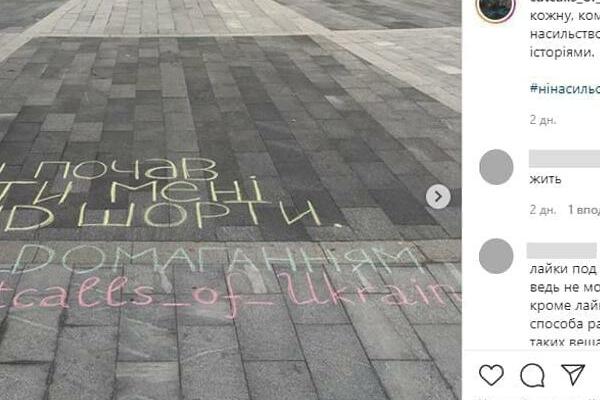 почав
ти мені
шорти.
ДОМАГАННЯМ
catcalls_of_Ukraine
кожну, ком
насильство
історіями.
#нінасильс
2 дн.
жить
2 дн. 1 впод
лайки под
ведь не мо
кроме лайк
способа ра
таких веща